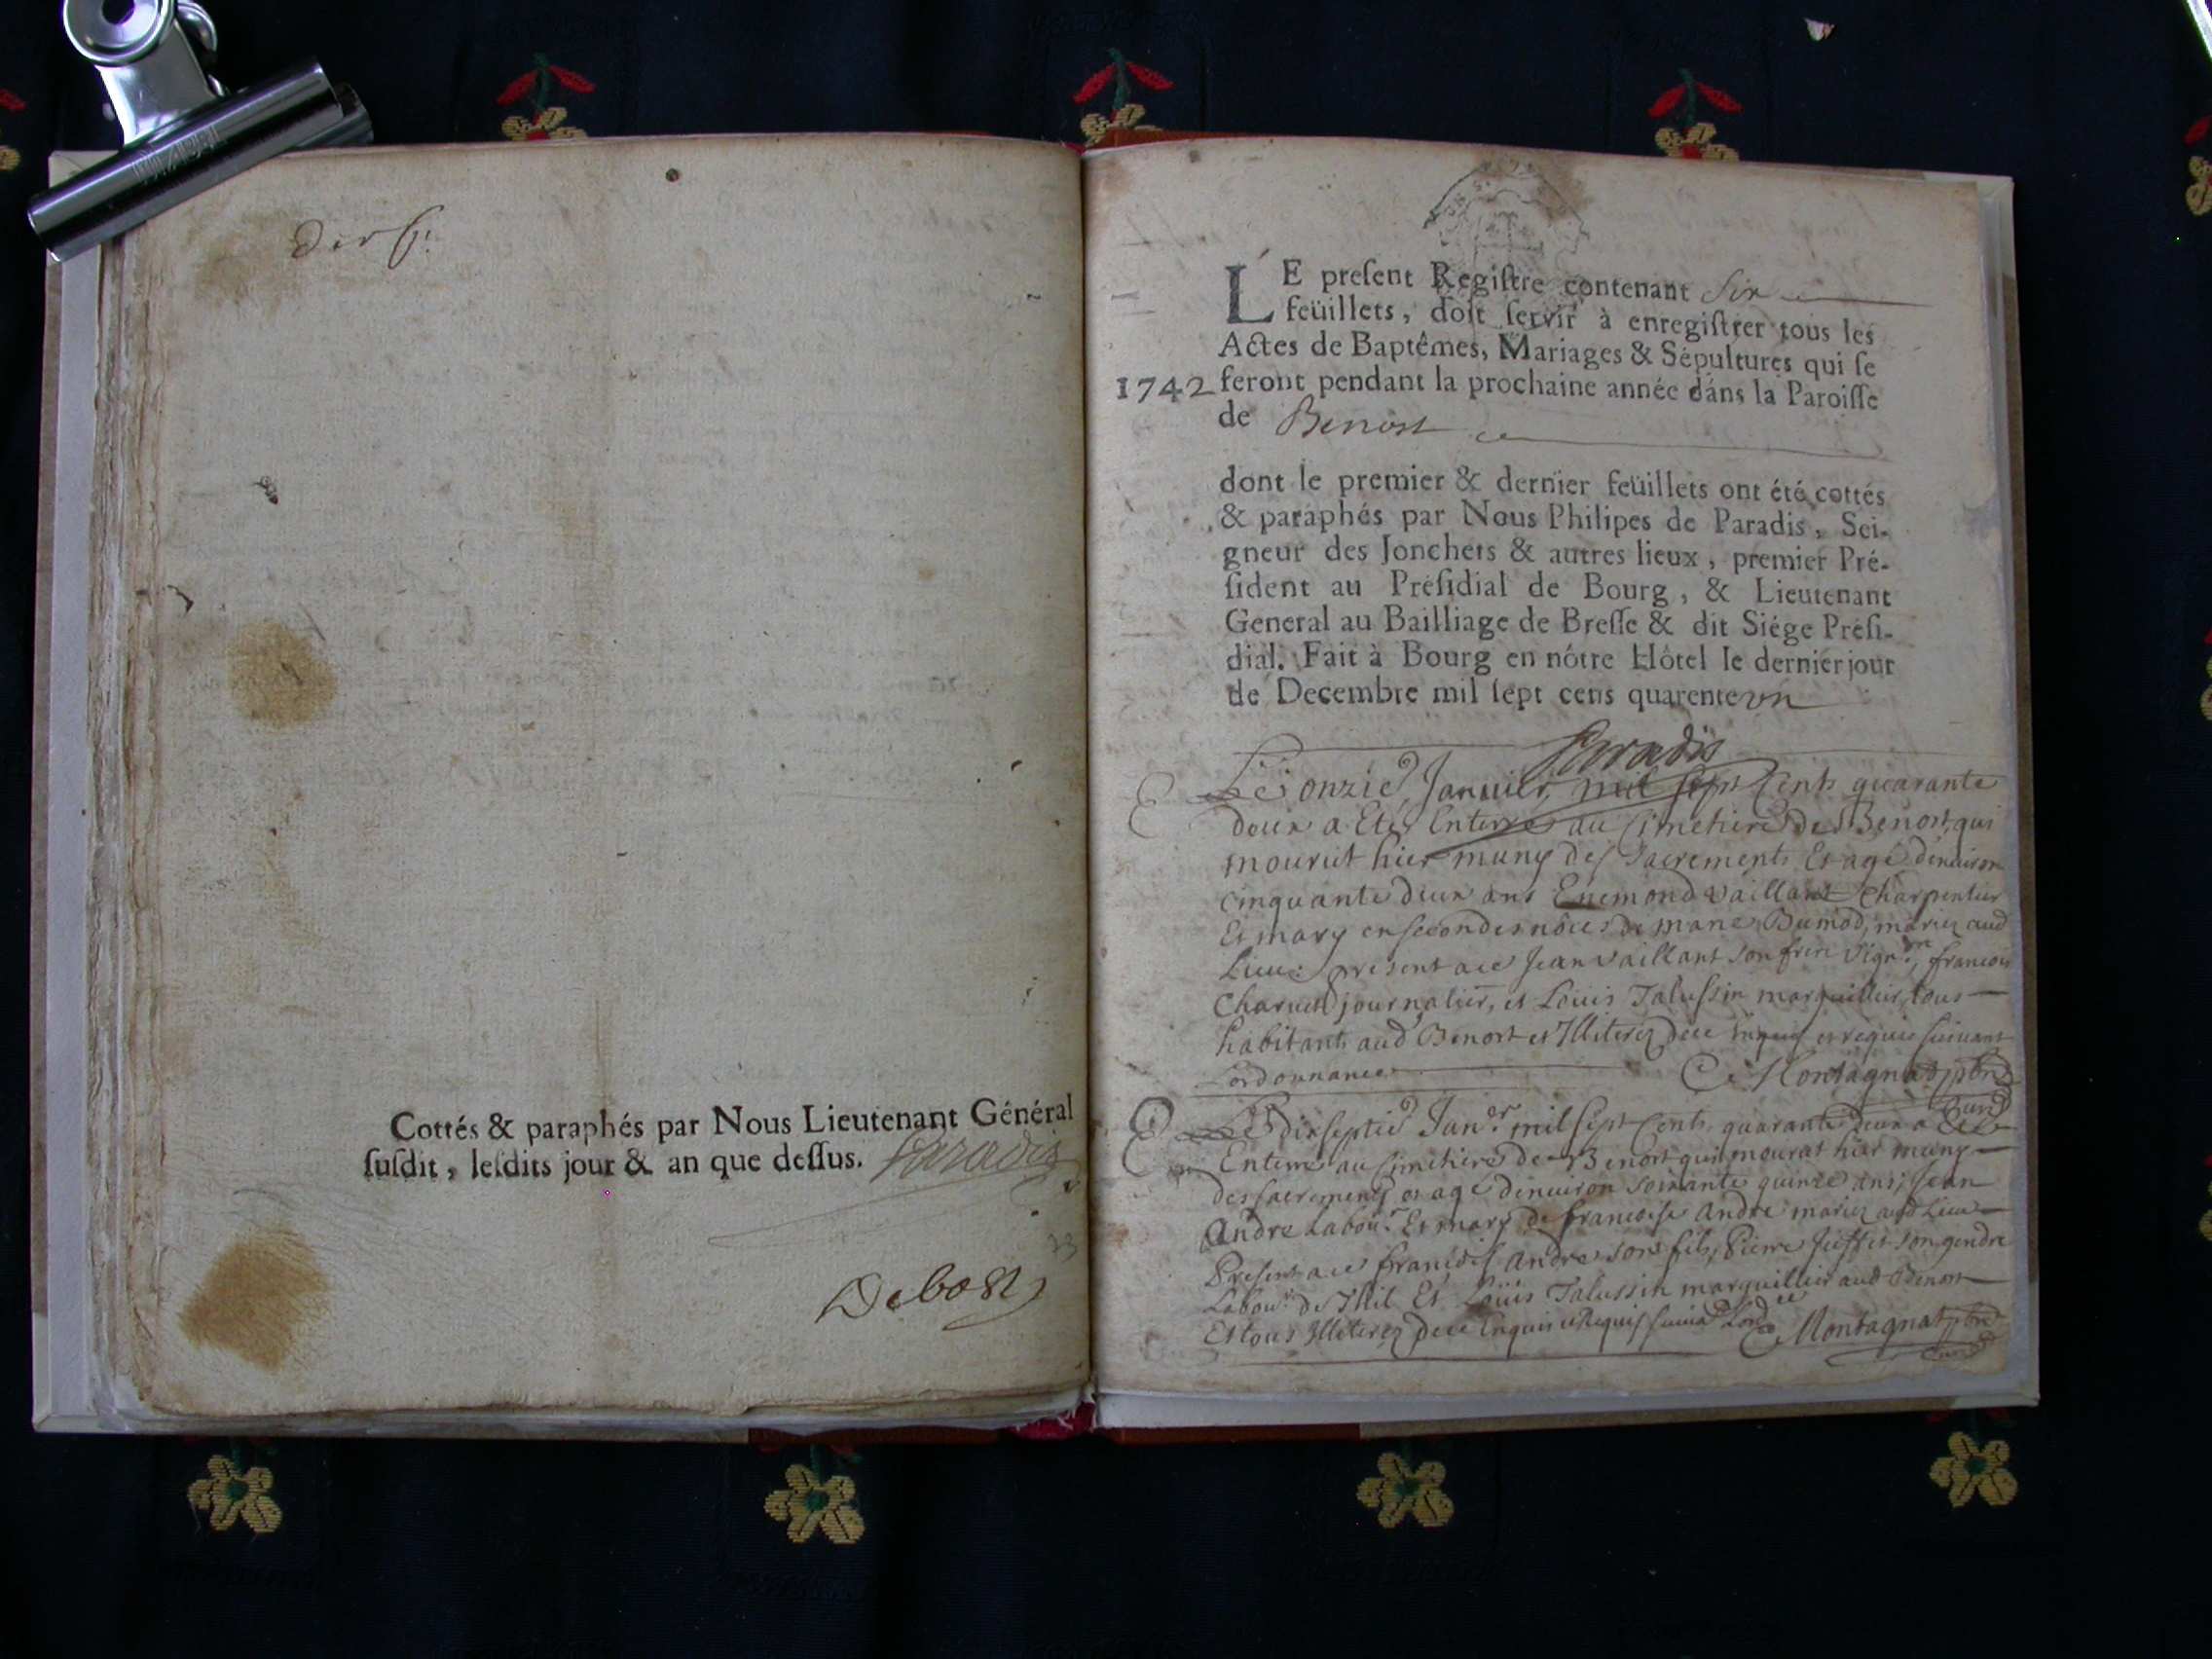 der f.
Cottés & paraphés par Nous Lieutenant Général
ſuſdit, leſdits jour & an que deſſus. Paradis
Debost
LE preſent Regiſtre contenant Six
feüillets, doit ſervir à enregiſtrer tous les
Actes de Baptêmes, Mariages & Sépultures qui ſe
1742 feront pendant la prochaine année dans la Paroiſſe
de Benost
dont le premier & dernier feüillets ont été cottés
& paraphés par Nous Philipes de Paradis, Sei-
gneur des Jonchets & autres lieux, premier Pré-
ſident au Préſidial de Bourg, & Lieutenant
General au Bailliage de Breſſe & dit Siége Préſi-
dial. Fait à Bourg en nôtre Hôtel le dernier jour
de Decembre mil ſept cens quarente un
Paradis
E Le onzie Januier mil sept Cents quarante
deux a Ete Enterré au Cimetiere de Benost qui
mourut hier muny des Sacrements Et agé denuiron
cinquante deux ans Enemond Vaillant Charpentier
Et mary en secondes nôces de marie Dumod, mariez aud
Lieu: present ace Jean vaillant son frere françois
journalier, et Loüis Talussin marguillier, tous
habitants aud Benost et Illiterez dece enquis et requis suiuant
Lordonnance C Montagnat ptre
Curé
E Le dixseptie Janer mil sept Cents quarante deux a Ete
Enterré au Cimetiere de Benost qui mourut hier muny
des sacrements et agé denuiron soixante quinze ans, Jean
Andre Labour Et mary de francoise Andre mariez aud Lieu
Present ace francois Andre son fils, Pierre son gendre
Labour de Et Loüis Talussin marguillier aud Benost
Et tous Illiterez dece Enquis et Requis suiua Lordce C Montagnat ptre
Curé